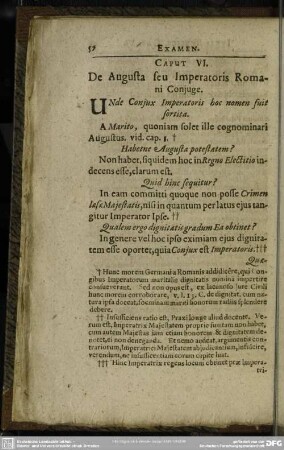 EXAMEN.
CAPUT VI.
De Augusta seu Imperatoris Roma-
ni Conjuge.
UNde Conjux Imperatoris hoc nomen fuit
sortita.
A Marito, quoniam solet ille cognominari
Augustus. vid. cap. 1. †
Habetne Augusta potestatem?
Non habet, siquidem hoc in Regno Electitio in-
decens esse, clarum est.
Quid hinc sequitur?
In eam committi quoque non posse Crimen
læsæ Majestatis, nisi in quantum per latus ejus tan-
gitur Imperator Ipse. ††
Qualem ergo dignitatis gradum Ea obtinet?
In genere vel hoc ipso eximiam ejus dignita-
tem esse oportet, quia Conjux est Imperatoris. †††
Qua-
† Hunc morem Germani a Romanis addidicêre, qui
Imperatorum maritalis dignitatis nomina impertire
consueverant. Sed non opus est, ex
hunc morem corroborare, C. de dignitat. cum na-
tura ipsa doceat, foeminam mariti honorum radiis splendere
debere.
†† Insufficiens ratio est, Praxi longe aliud docente. Ve-
rum est, Imperatrix Majestatem proprio suo tam non habet,
cum autem Majestas
nec, ei non deneganda. Et nemo audeat, argumentis con-
trariorum, Imperatrici Majestatem abjudicantium, insidere,
verendum, ne insufficientiam eorum capite luat.
††† Hinc Imperatrix regens locum obtinet præ impera-
tri-